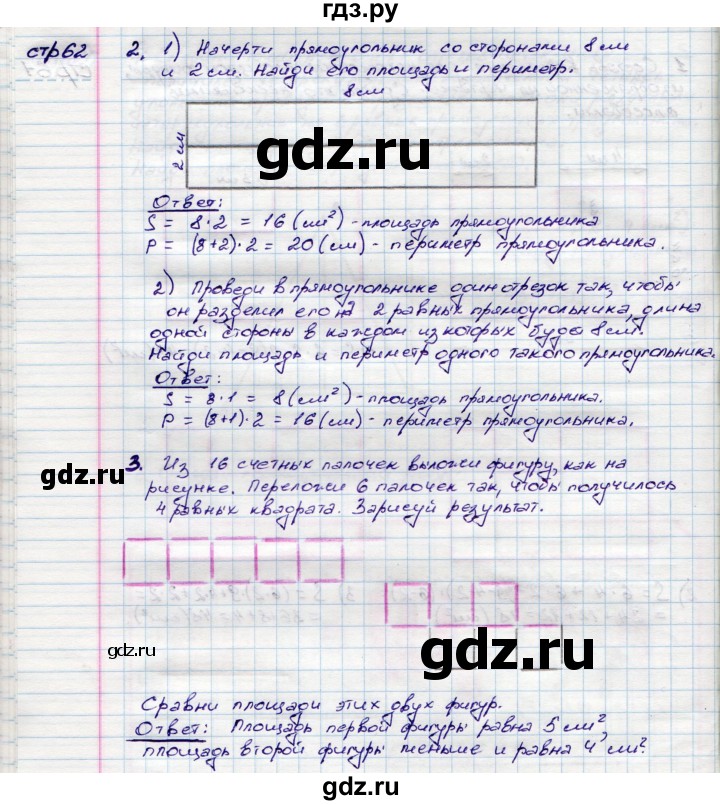 гдз.ру
стр 62
2. 1) Начерти прямоугольник со сторонами 8 см
и 2 см. Найди его площадь и периметр.
8 см
2 см
gdz.ru
Ответ:
S = 8·2 = 16 (см²) - площадь прямоугольника
P = (8+2)·2 = 20 (см) - периметр прямоугольника.
2) Проведи в прямоугольнике один отрезок так, чтобы
он разделил его на 2 равных прямоугольника, длина
одной стороны в каждом из которых будет 8 см.
Найди площадь и периметр одного такого прямоугольника.
gdz.ru
Ответ:
S = 8·1 = 8 (см²) - площадь прямоугольника.
P = (8+1)·2 = 16 (см) - периметр прямоугольника.
3. Из 16 счетных палочек выложи фигуру, как на
рисунке. Переложи 6 палочек так, чтобы получилось
gdz.ru
4 равных квадрата. Зарисуй результат.
gdz.ru
gdz.ru
Сравни площади этих двух фигур.
Ответ: Площадь первой фигуры равна 5 см²,
площадь второй фигуры меньше и равна 4 см².
gdz.ru